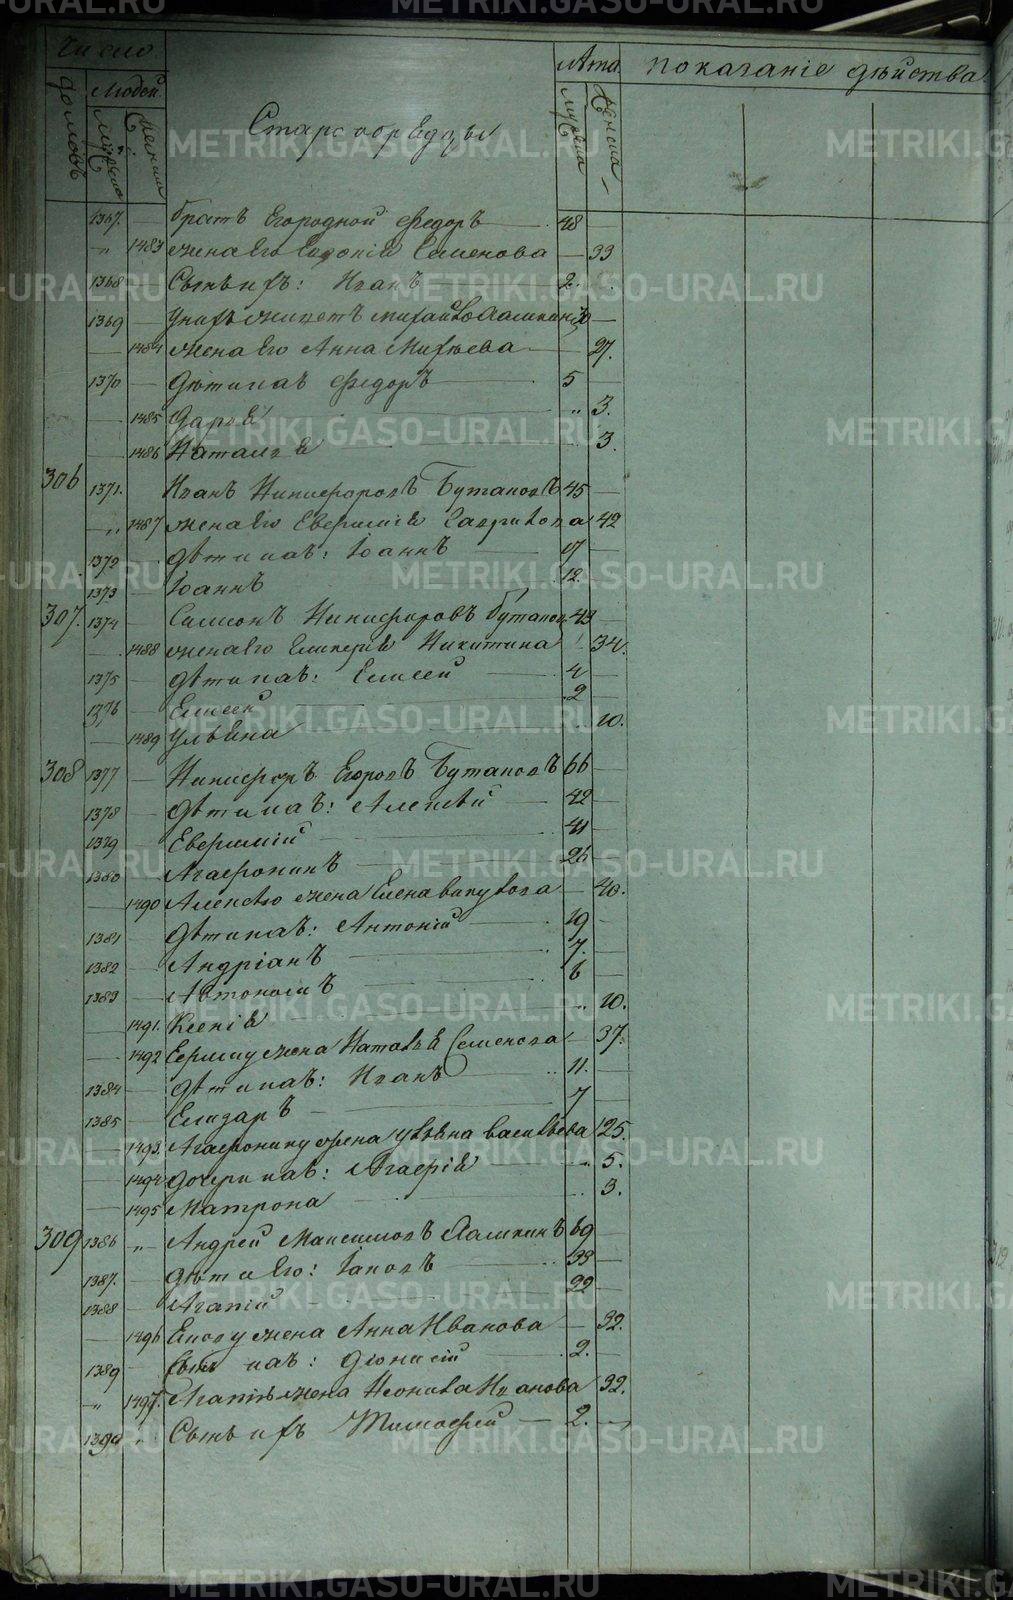 Число
домовъ
Людей
мужска
женска
Старообрядцы
Лѣта
мужска
женска
показаніе дѣйства
1367. — братъ Егородной Ѳедоръ — 48 —
" 1483 жена Его Евдокія Семенова — 33
1368 — Сынъ ихъ: Иванъ — 2.
1369 — У нихъ живетъ Михайло —
— 1484 жена Его Анна Михѣева — 27.
1370 — дѣти ихъ Ѳедоръ — 5 —
— 1485 Дарья — " 3.
— 1486 Наталья — 3.
306 1371. Иванъ Никифоровъ Бутаковъ 45 —
" 1487 жена Его Евфимія Гаврилова 42
1372 — дѣти ихъ: Іоаннъ — 17 —
1373 — Іоаннъ — 12.
307. 1374 — Симионъ Никифоровъ Бутаковъ 43
1488 жена Его Гликерія Никитина 34.
1375 — дѣти ихъ: Елисей — 4 —
1376 — Елисей — 2
— 1489 Ульяна — 10.
308 1377 — Никифоръ Егоровъ Бутаковъ 66 —
1378 — дѣти ихъ: Алексѣй — 42 —
1379 — Евфимій — 41 —
1380 — Агафоникъ — 26 —
— 1490 Алексѣю жена Елена Викулова — 40.
1381 — дѣти ихъ: Антоній — 19 —
1382 — Андріанъ — 7. —
1383 — Автономъ — 6 —
— 1491. Ксенія — 10.
— 1492 жена Наталья Семенова — 37.
1384 — дѣти ихъ: Иванъ — 11. —
1385 — Елизаръ — 7 —
— 1493. Агафонику жена Ульяна Васильева 25.
— 1494 дочери ихъ: Агафія — 5.
— 1495 Матрона — 3.
309 1386 " Андрей Максимовъ 69 —
1387. — дѣти Его: Іаковъ — 33 —
1388 — Агапій — 22 —
— 1496 жена Анна Иванова — 32.
1389 — сынъ ихъ: Діонисій — 2. —
" 1497. Агапію жена Неонила Иванова 32.
1390 " Сынъ ихъ Тимофей — 2. —
METRIKI.GASO-URAL.RU